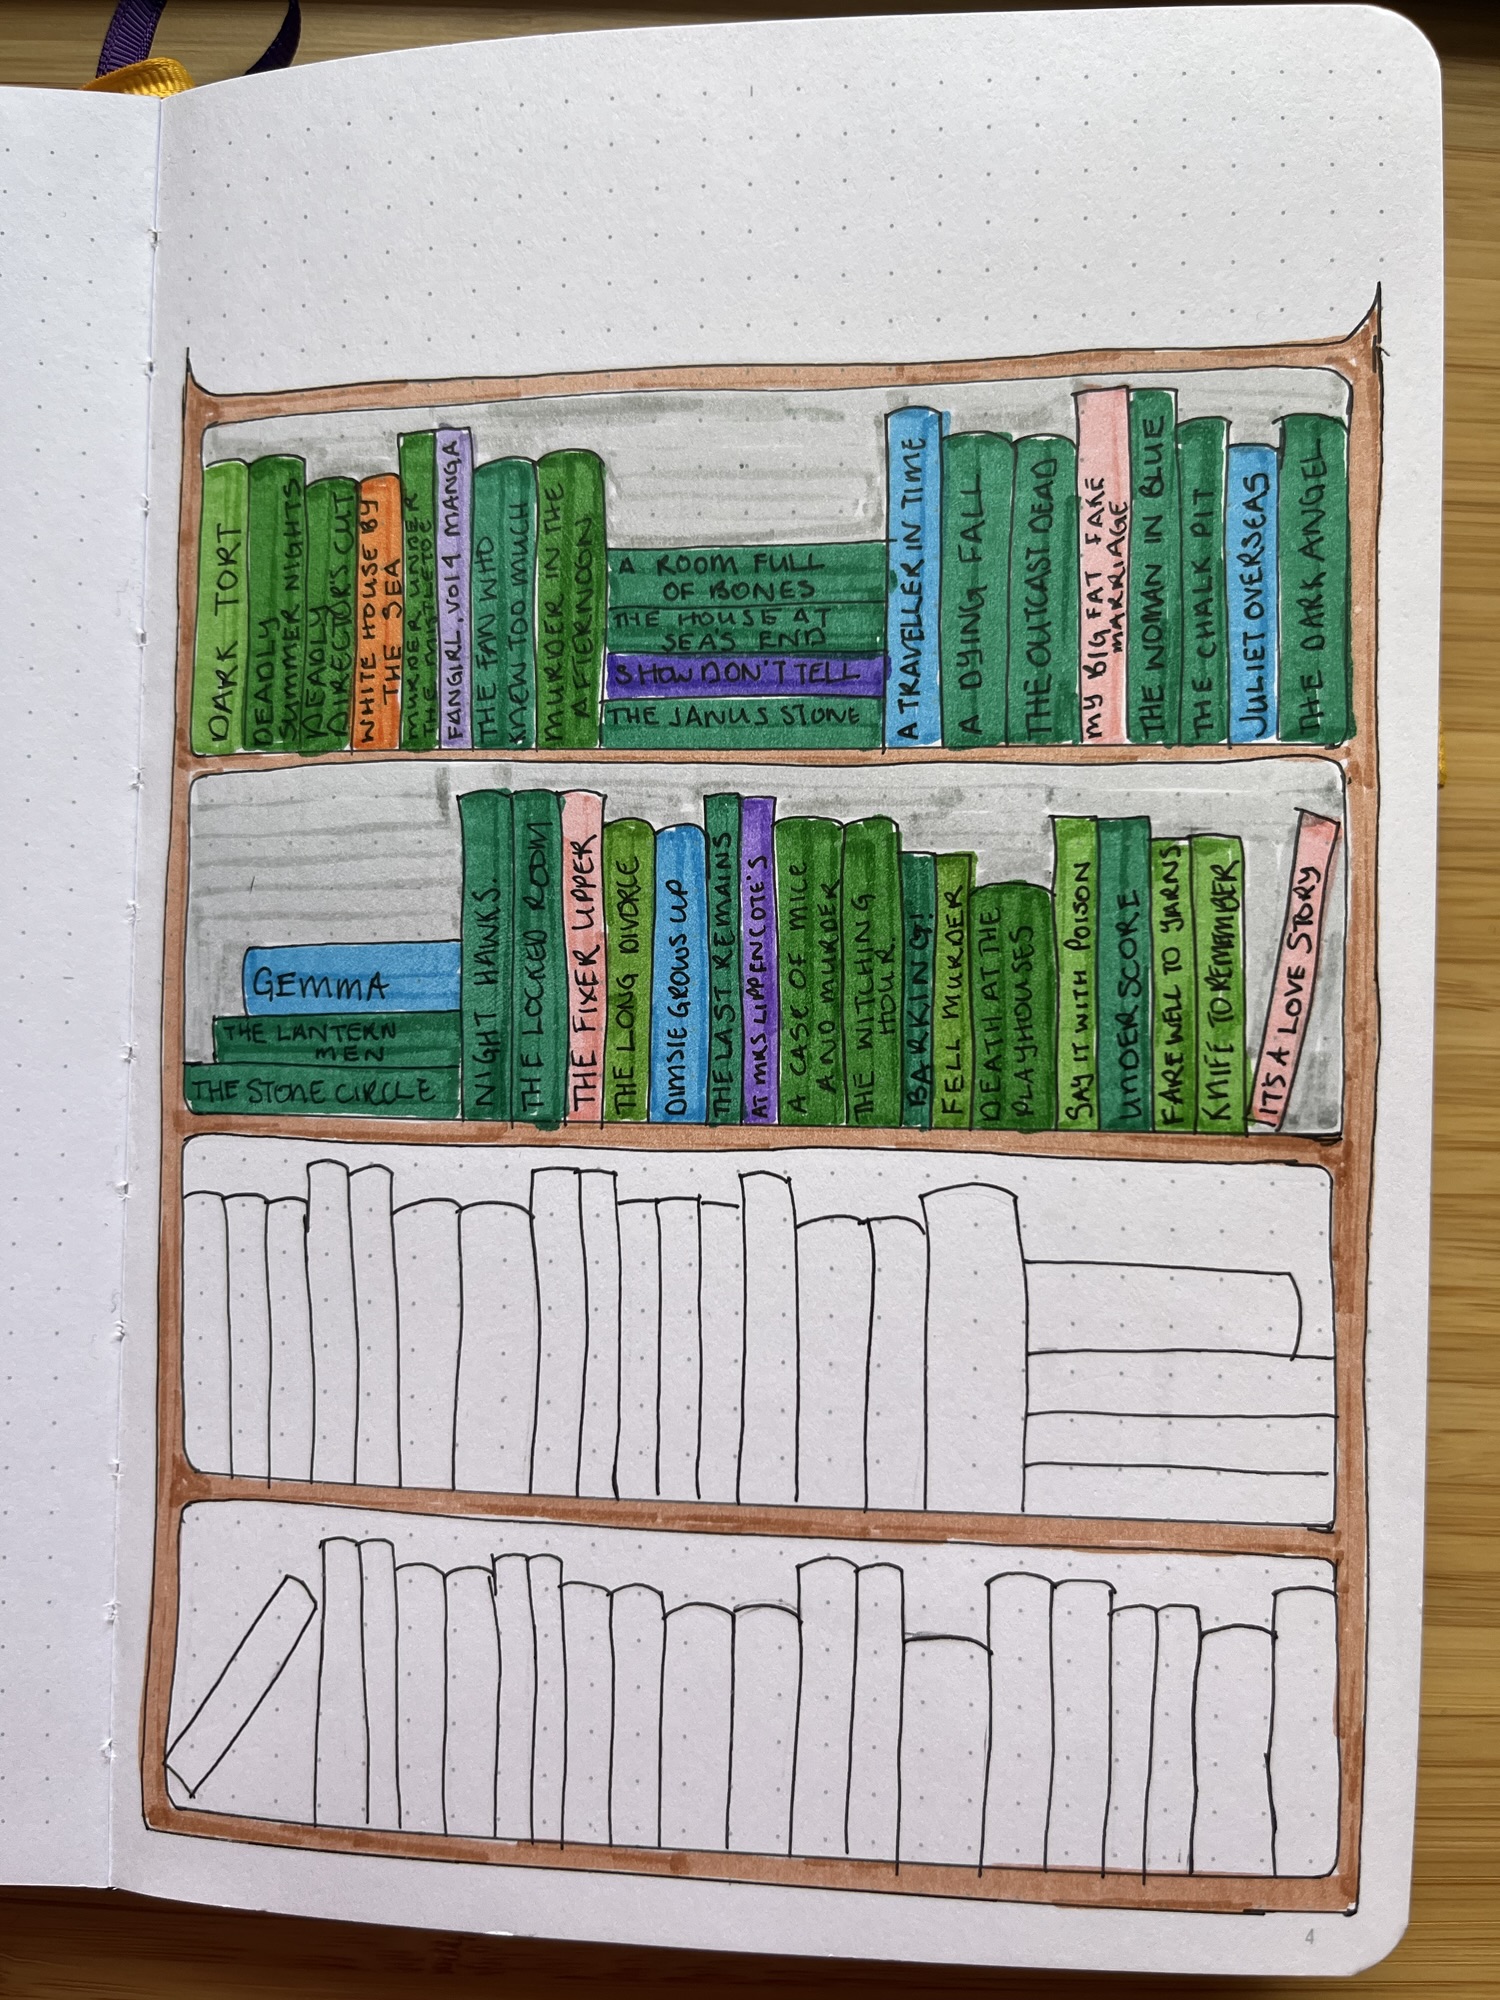 DARK TORT
DEADLY
SUMMER NIGHTS
DEADLY
DIRECTOR'S CUT
WHITE HOUSE BY
THE SEA
MURDER UNDER
THE MISTLETOE
FANGIRL, VOL 4 MANGA
THE FAN WHO
KNEW TOO MUCH
MURDER IN THE
AFTERNOON
A ROOM FULL
OF BONES
THE HOUSE AT
SEA'S END
SHOW DON'T TELL
THE JANUS STONE
A TRAVELLER IN TIME
A DYING FALL
THE OUTCAST DEAD
MY BIG FAT FAKE
MARRIAGE
THE WOMAN IN BLUE
THE CHALK PIT
JULIET OVERSEAS
THE DARK ANGEL
GEMMA
THE LANTERN
MEN
THE STONE CIRCLE
NIGHT HAWKS.
THE LOCKED ROOM
THE FIXER UPPER
THE LONG DIVORCE
DIMSIE GROWS UP
THE LAST REMAINS
AT MRS LIPPENCOTE'S
A CASE OF MICE
AND MURDER
THE WITCHING
HOUR
BARKING!
FELL MURDER
DEATH AT THE
PLAYHOUSES
SAY IT WITH POISON
UNDER SCORE
FAREWELL TO YARNS
KNIFE TO REMEMBER
IT'S A LOVE STORY
4